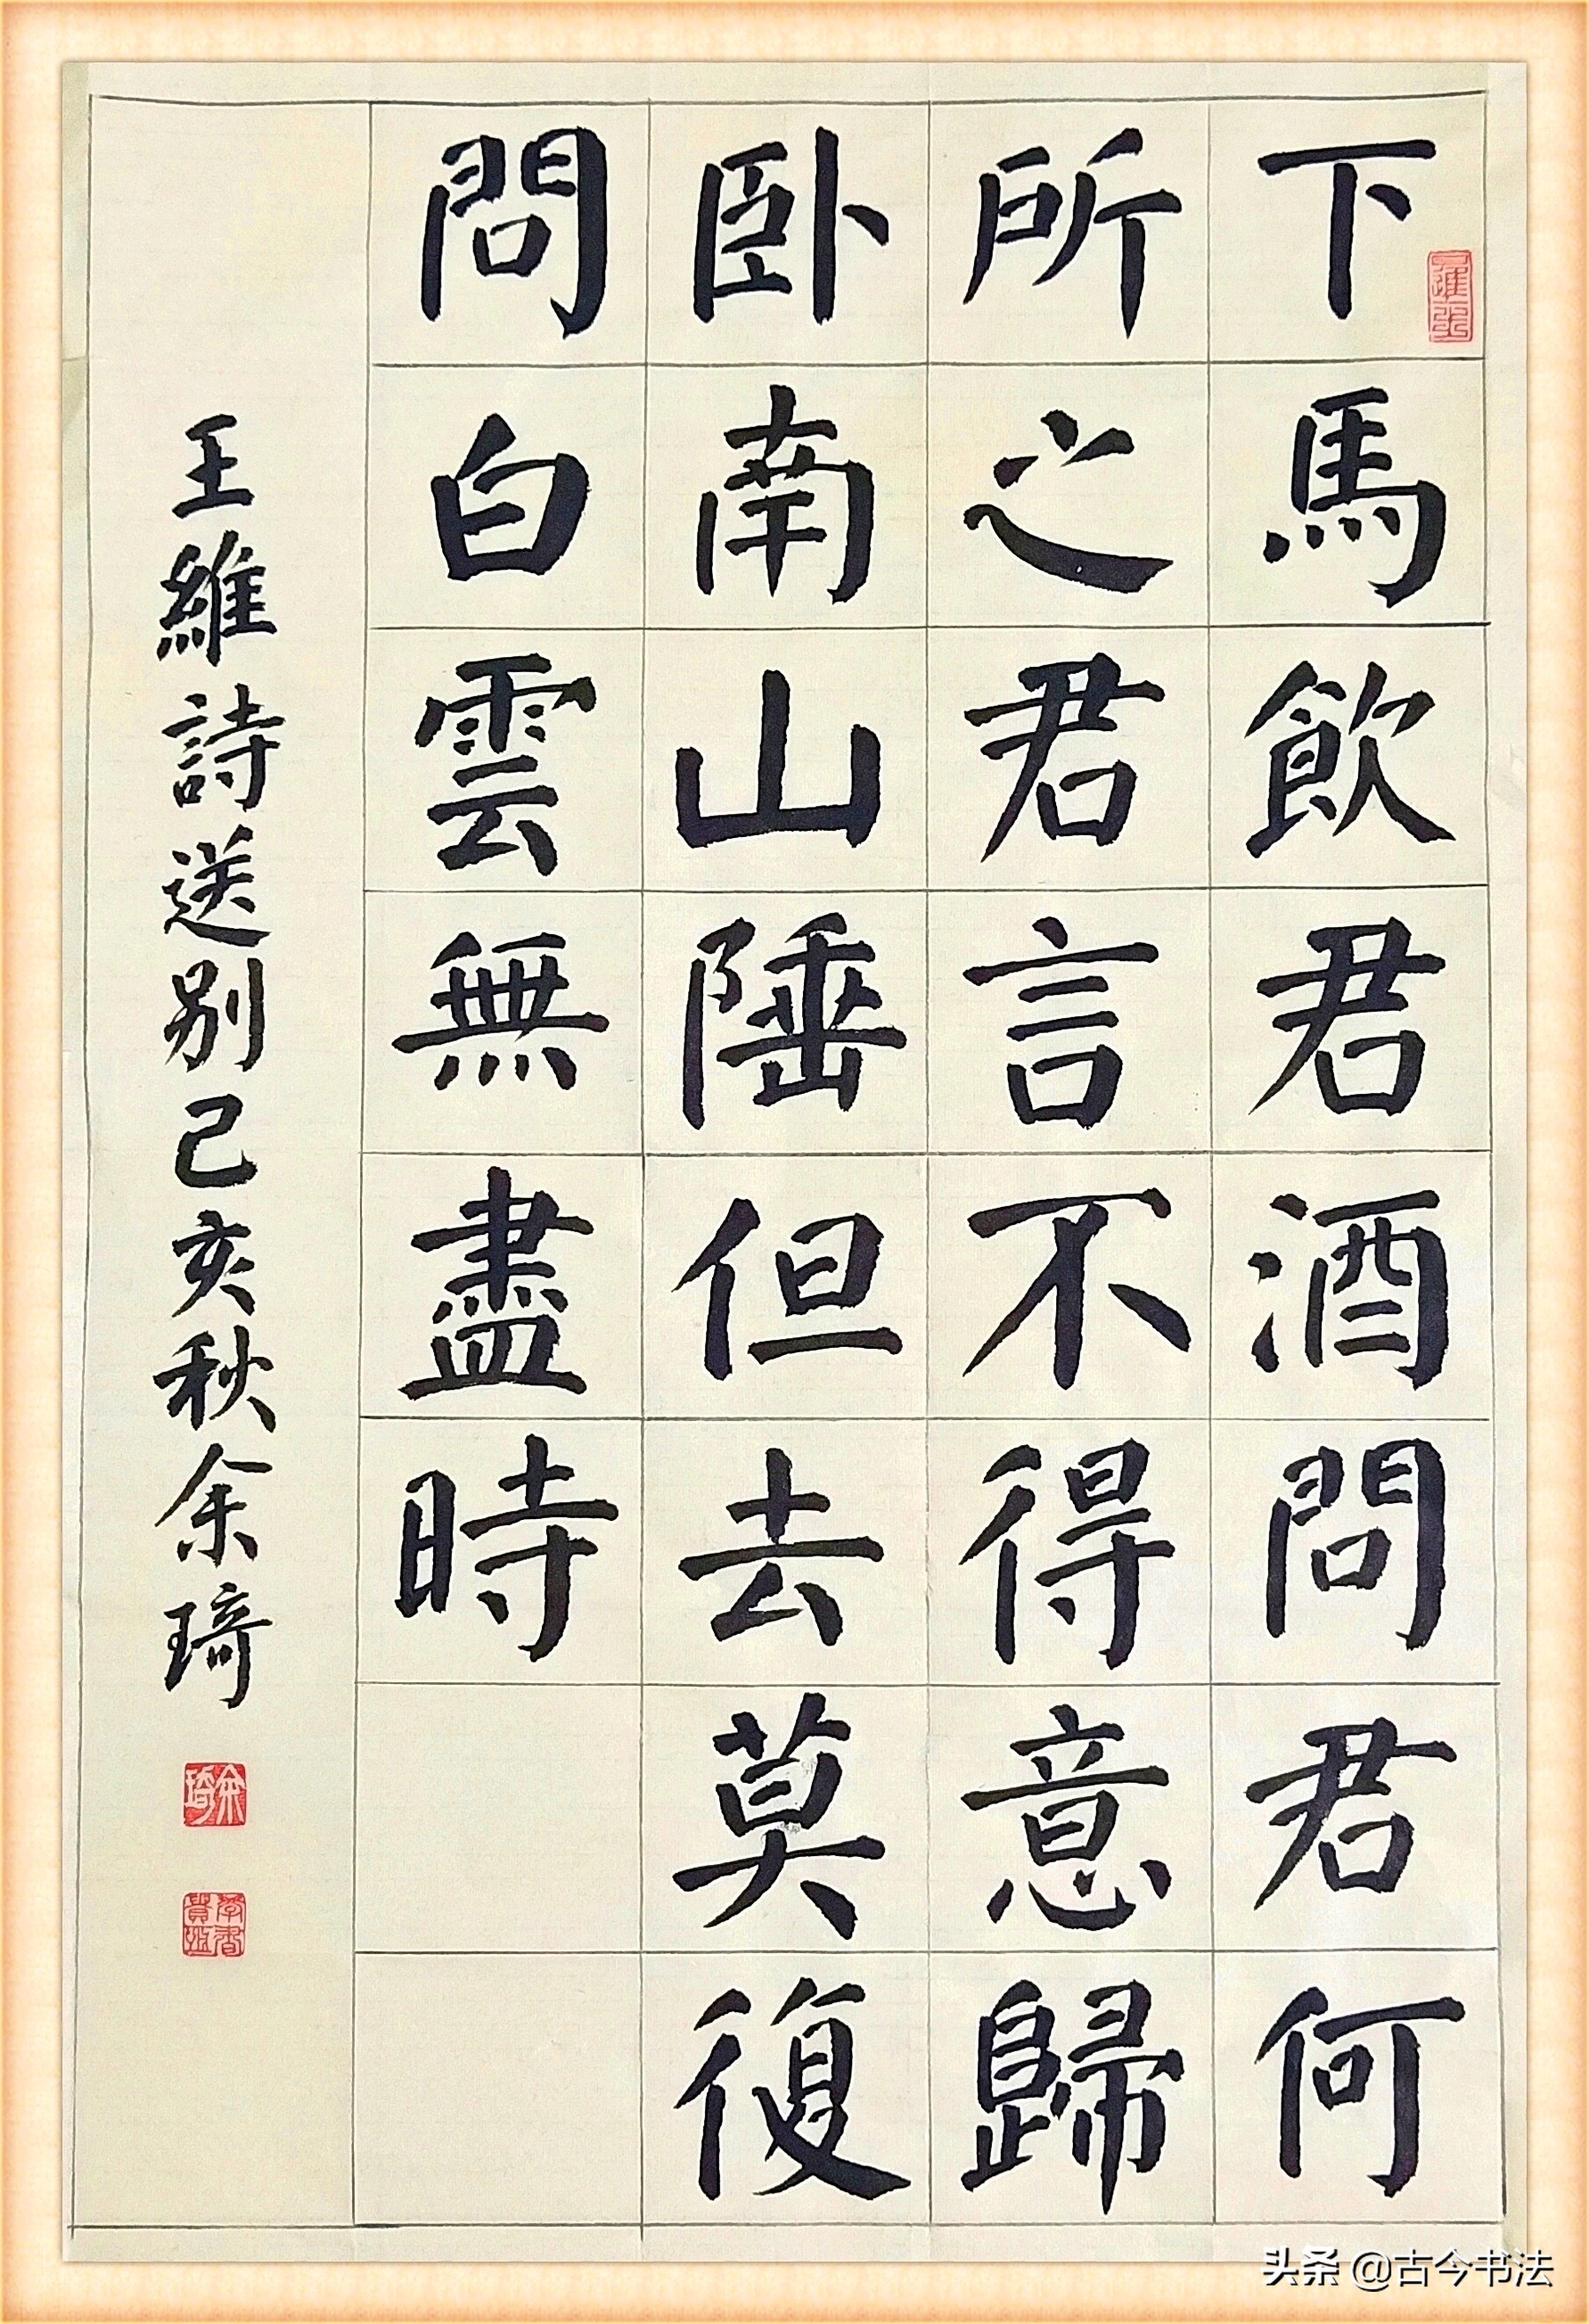 下馬飲君酒問君何
所之君言不得意歸
卧南山陲但去莫復
問白雲無盡時
王維詩送别己亥秋余琦
余琦
头条 @古今书法